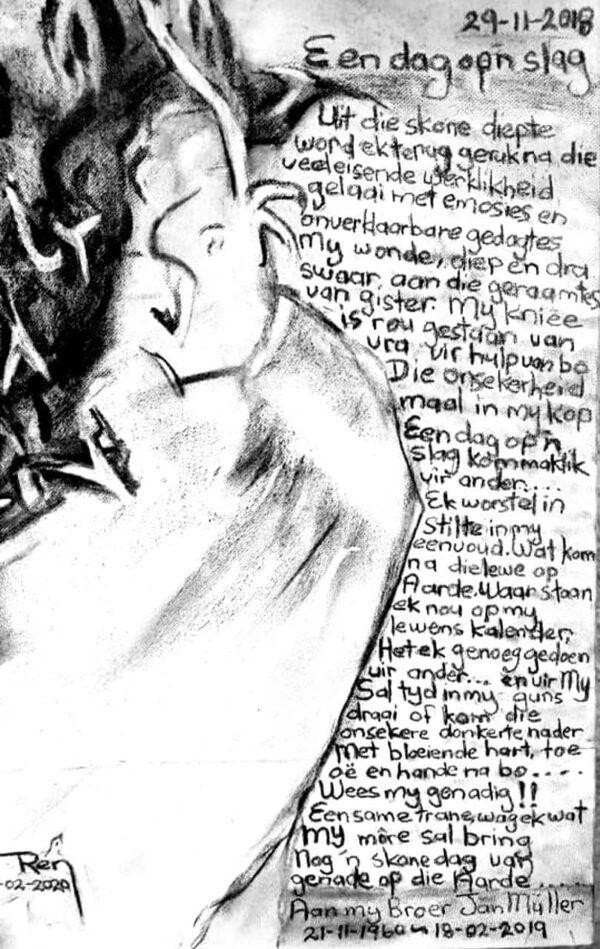 29-11-2018
Een dag op'n slag
Uit die skone diepte
word ek terug geruk na die
vereisende werklikheid
gelaai met emosies en
onverklaarbare gedagtes
My wonde, diep en dra
swaar, aan die geraamtes
van gister. My knieë
is rou gestaan van
vra vir hulp van bo
Die onsekerheid
maal in my kop
Een dag op'n
slag kom maklik
vir ander....
Ek worstel in
stilte in my
eenvoud. Wat kom
na die lewe op
Aarde. Waar staan
ek nou op my
lewens kalender,
Het ek genoeg gedoen
vir ander... en vir My
Sal tyd in my guns
draai of kom die
onsekere donkerte nader
Met bloeiende hart, toe
oë en hande na bo....
Wees my genadig!!
Eensame trane, wag ek wat
my môre sal bring
Nog 'n skone dag van
genade op die Aarde.....
Aan my Broer Jan Müller
21-11-1960 - 18-02-2019
Ren
-02-2020